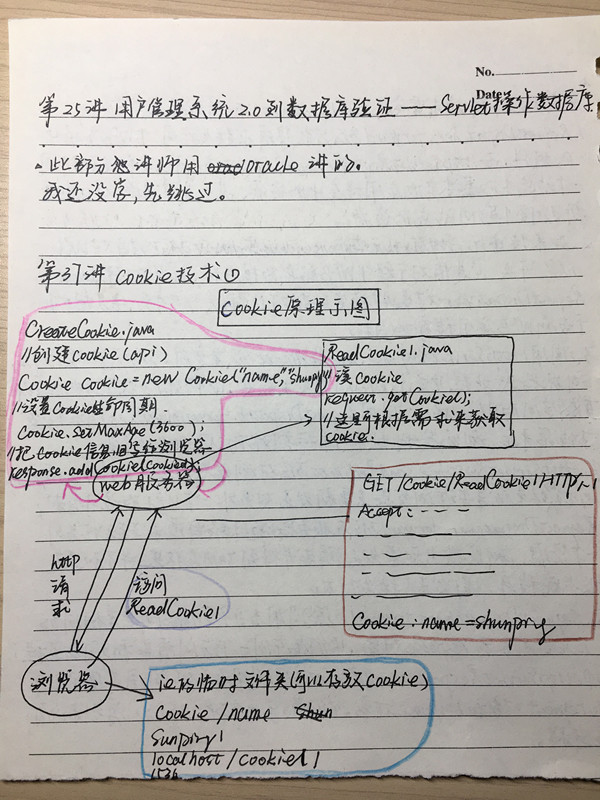 No.
Date
第25讲 用户管理系统2.0到数据库验证——Servlet操作数据库
此部分老讲师用oracle讲的.
我还没学,先跳过。
第37讲 Cookie技术(1)
Cookie原理示图
CreateCookie.java
//创建cookie(api)
Cookie cookie=new Cookie("name","shunping")
//设置Cookie生命周期
Cookie.setMaxAge(3600);
//把Cookie信息回写给浏览器
response.addCookie(cookie);
ReadCookie1.java
//读Cookie
request.getCookie();
//这里可根据需求来获取
cookie.
web服务器
GET/Cookie/ReadCookie1/HTTP/1.1
Accept:
Cookie:name=shunping
http
请
求
访问
ReadCookie1
浏览器
ie的临时文件夹(可以存放Cookie)
Cookie/name
Sunping1
localhost/cookie1
1536